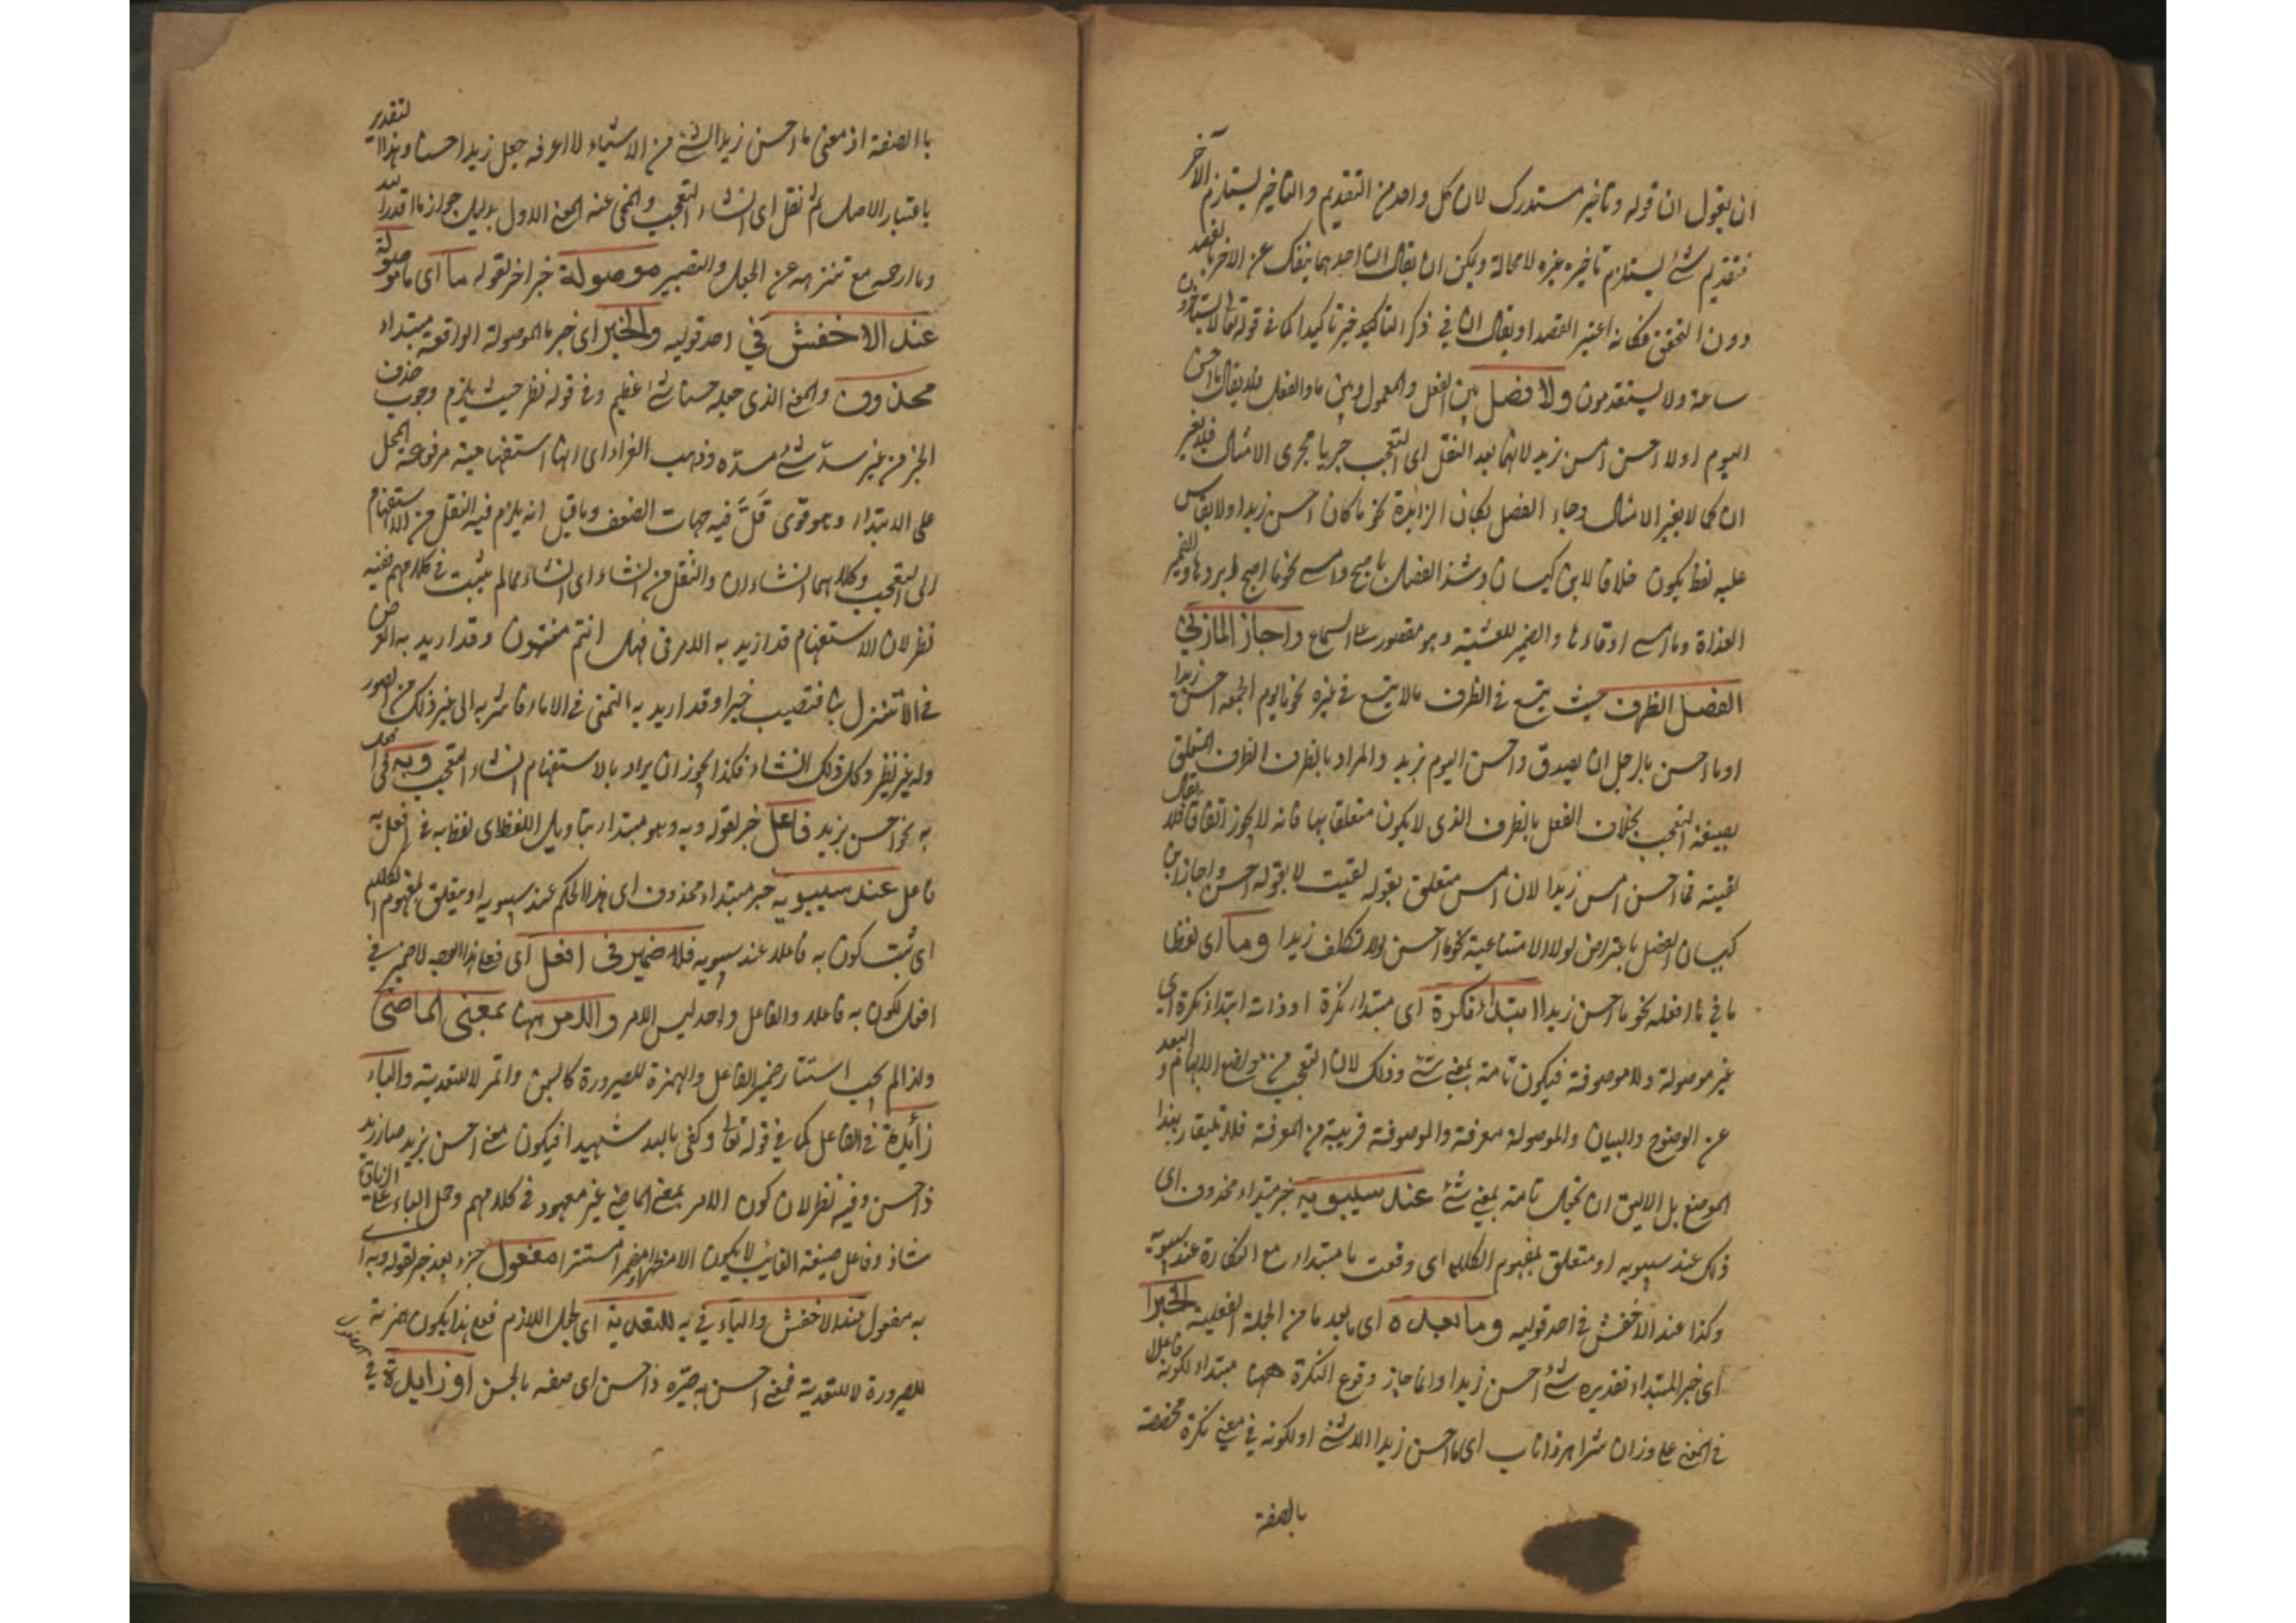 ان يقول ان قوله وتاخير مستدرك لان كل واحد من التقديم والتاخير يستلزم الآخر
فتقديم شئ يستلزم تاخيره غيره لا محالة ويمكن ان يقال ان احدهما ينفك عن الاخر بالقصد
دون التحقق فكانه اعتبر القصد او يقال ان في ذكر التاكيد خبر تاكيدا كما في قوله تعالى لا يستاخرون
ساعة ولا يستقدمون ولا فصل بين الفعل والمعمول وبين ما والفعل فلا يقال ما احسن
اليوم اولا احسن امس زيد لانهما بعد النقل اى التعجب جريا مجرى الامثال فلا يغير
ان كما لا يغير الامثال وجاء الفصل بكان الزايدة نحو ما كان احسن زيدا ولا يقاس
عليه لفظ يكون خلافا لابن كيسان وشذ الفصل باصبح وامسى نحو ما اصبح ابردها والضمير
الغداة وما امسى ادفاءها والضمير للعشية وهو مقصور على السماع واجاز المازني
الفصل الظرف حيث يتسع في الظرف مالا يتسع في غيره نحو ما يوم الجمعة احسن زيدا
او ما احسن بالرجل ان يصدق واحسن اليوم بزيد والمراد بالظرف الظرف المتعلق
بصيغة التعجب بخلاف الفعل بالظرف الذى لا يكون متعلقا بها فانه لا يجوز اتفاقا فلا يقال
لقيته فما احسن امس زيدا لان امس متعلق بقوله لقيت لا بقوله احسن واجاز ابن
كيسان الفصل باعتراض لولا الامتناعية نحو ما احسن لولا تكلف زيدا وما اى لفظ
ما في ما افعله نحو ما احسن زيدا ابتداء نكرة اى مبتدا نكرة او ذات ابتدا نكرة اى
غير موصولة ولا موصوفة فيكون تامة بمعنى شئ وذلك لان التعجب من مواضع الابهام و البعد
عن الوضوح والبيان والموصولة معرفة والموصوفة قريبة من المعرفة فلا تليقا بهذا
الموضع بل الاليق ان تجعل تامة بمعنى شئ عند سيبويه خبر مبتداء محذوف اى
ذلك عند سيبويه او متعلق بمفهوم الكلام اى وقعت ما مبتداء مع النكارة عند سيبويه
وكذا عند الاخفش في احد قوليه وما بعده اى ما بعد ما من الجملة الفعلية الخبر
اى خبر المبتداء تقديره شئ احسن زيدا وانما جاز وقوع النكرة ههنا مبتداء لكونه فاعلا
في المعنى على وزان شر اهر ذا ناب اى ما احسن زيدا الا شئ او لكونه في معنى نكرة مخصصة
بالصفة
باالصفة اذ معنى ما احسن زيدا شئ من الاشياء لا اعرفه جعل زيدا حسنا وهذا التقدير
باعتبار الاصل ثم نقل اى انشاء التعجب وانمحى عنه المعنى الاول بدليل جواز ما اقدر الله
وما ارحمه مع تنزهه عن الجعل والتصيير موصولة خبر اخر لقوله ما اى ما موصولة
عند الاخفش في احد قوليه والخبر اى خبر ما الموصولة الواقعة مبتداء
محذوف والمعنى الذى جعله حسنا شئ عظيم وفي قوله نظر حيث يلزم وجوب حذف
الخبر من غير سدّ شئ مسدّه وذهب الفراء اى انها استفهامية مرفوعة المحل
على الابتداء وهو قوى قَلَّ فيه جهات الضعف وما قيل انه يلزم فيه النقل من الاستفهام
الى التعجب وكلاهما انشاءان والنقل من انشاء اى انشاء مما لم يثبت في كلامهم ففيه
نظر لان الاستفهام قد اريد به الامر في فهل انتم منتهون وقد اريد به العرض
في الا تنزل بنا فتصيب خيرا وقد اريد به التمنى في الا ماء فاشربه الى غير ذلك من الصور
وله غير نظير وكل ذلك انشاء فكذا يجوز ان يراد بالاستفهام انشاء التعجب وبه في افعل
به نحو احسن بزيد فاعل خبر لقوله وبه وهو مبتدا بتاويل اللفظ اى لفظ به في افعل به
فاعل عند سيبويه خبر مبتداء محذوف اى هذا الحكم عند سيبويه او متعلق بمفهوم الكلام
اى ثبت كون به فاعلا عند سيبويه فلا ضمير في افعل اى فعلى هذا الوجه لا ضمير في
افعل لكون به فاعلا والفاعل واحد ليس الا والامر ههنا بمعنى الماضى
ولذا لم يجب استتار ضمير الفاعل والهمزة للصيرورة كالبن واتمر لا للتعدية والباء
زائدة في الفاعل كما في قوله تعالى وكفى بالله شهيدا فيكون معنى احسن بزيد صار زيد
ذا حسن وفيه نظر لان كون الامر بمعنى الماضى غير معهود في كلامهم وحمل الباء على الزيادة
شاذ وفاعل صيغة الغائب لا يكون الا مظهرا او ضميرا مستترا مفعول خبر بعد خبر لقوله وبه
به مفعول عند الاخفش والباء في به للتعدية اى لجعل اللازم فعلى هذا يكون همزته
للصيرورة لا للتعدية فمعنى احسن به صيّره ذا حسن اى صفه بالحسن او زايدة في المفعول